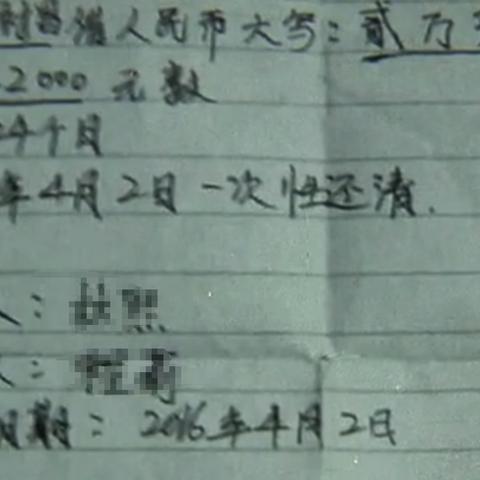 人民币大写：贰万
2000元整
4个月
年4月2日一次性还清.
人：
人：
日期：2016年4月2日